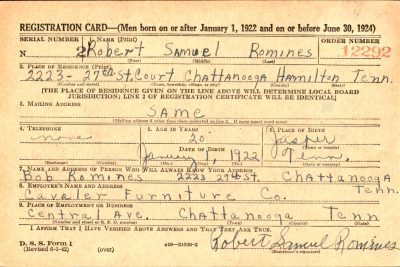 REGISTRATION CARD—(Men born on or after January 1, 1922 and on or before June 30, 1924)
SERIAL NUMBER 1. NAME (Print) ORDER NUMBER
N. 2 Robert Samuel Romines 12292
(First) (Middle) (Last)
2. PLACE OF RESIDENCE (Print)
2223 - 27th St. Court Chattanooga Hamilton Tenn.
(Number and street) (Town, township, village, or city) (County) (State)
[THE PLACE OF RESIDENCE GIVEN ON THE LINE ABOVE WILL DETERMINE LOCAL BOARD
JURISDICTION; LINE 2 OF REGISTRATION CERTIFICATE WILL BE IDENTICAL]
3. MAILING ADDRESS
Same
[Mailing address if other than place indicated on line 2. If same insert word same]
4. TELEPHONE 5. AGE IN YEARS 6. PLACE OF BIRTH
none 20 Jasper
DATE OF BIRTH (Town or county)
January 1, 1922 Tenn.
(Exchange) (Number) (Mo.) (Day) (Yr.) (State or country)
7. NAME AND ADDRESS OF PERSON WHO WILL ALWAYS KNOW YOUR ADDRESS
Bob Romines 2223 27th St. Chattanooga Tenn.
8. EMPLOYER'S NAME AND ADDRESS
Cavaler Furniture Co.
9. PLACE OF EMPLOYMENT OR BUSINESS
Central Ave. Chattanooga Tenn
(Number and street or R. F. D. number) (Town) (County) (State)
I AFFIRM THAT I HAVE VERIFIED ABOVE ANSWERS AND THAT THEY ARE TRUE.
D. S. S. Form 1
(Revised 6-1-42) (over) 16—21630-2 Robert Samuel Romines
(Registrant's signature)